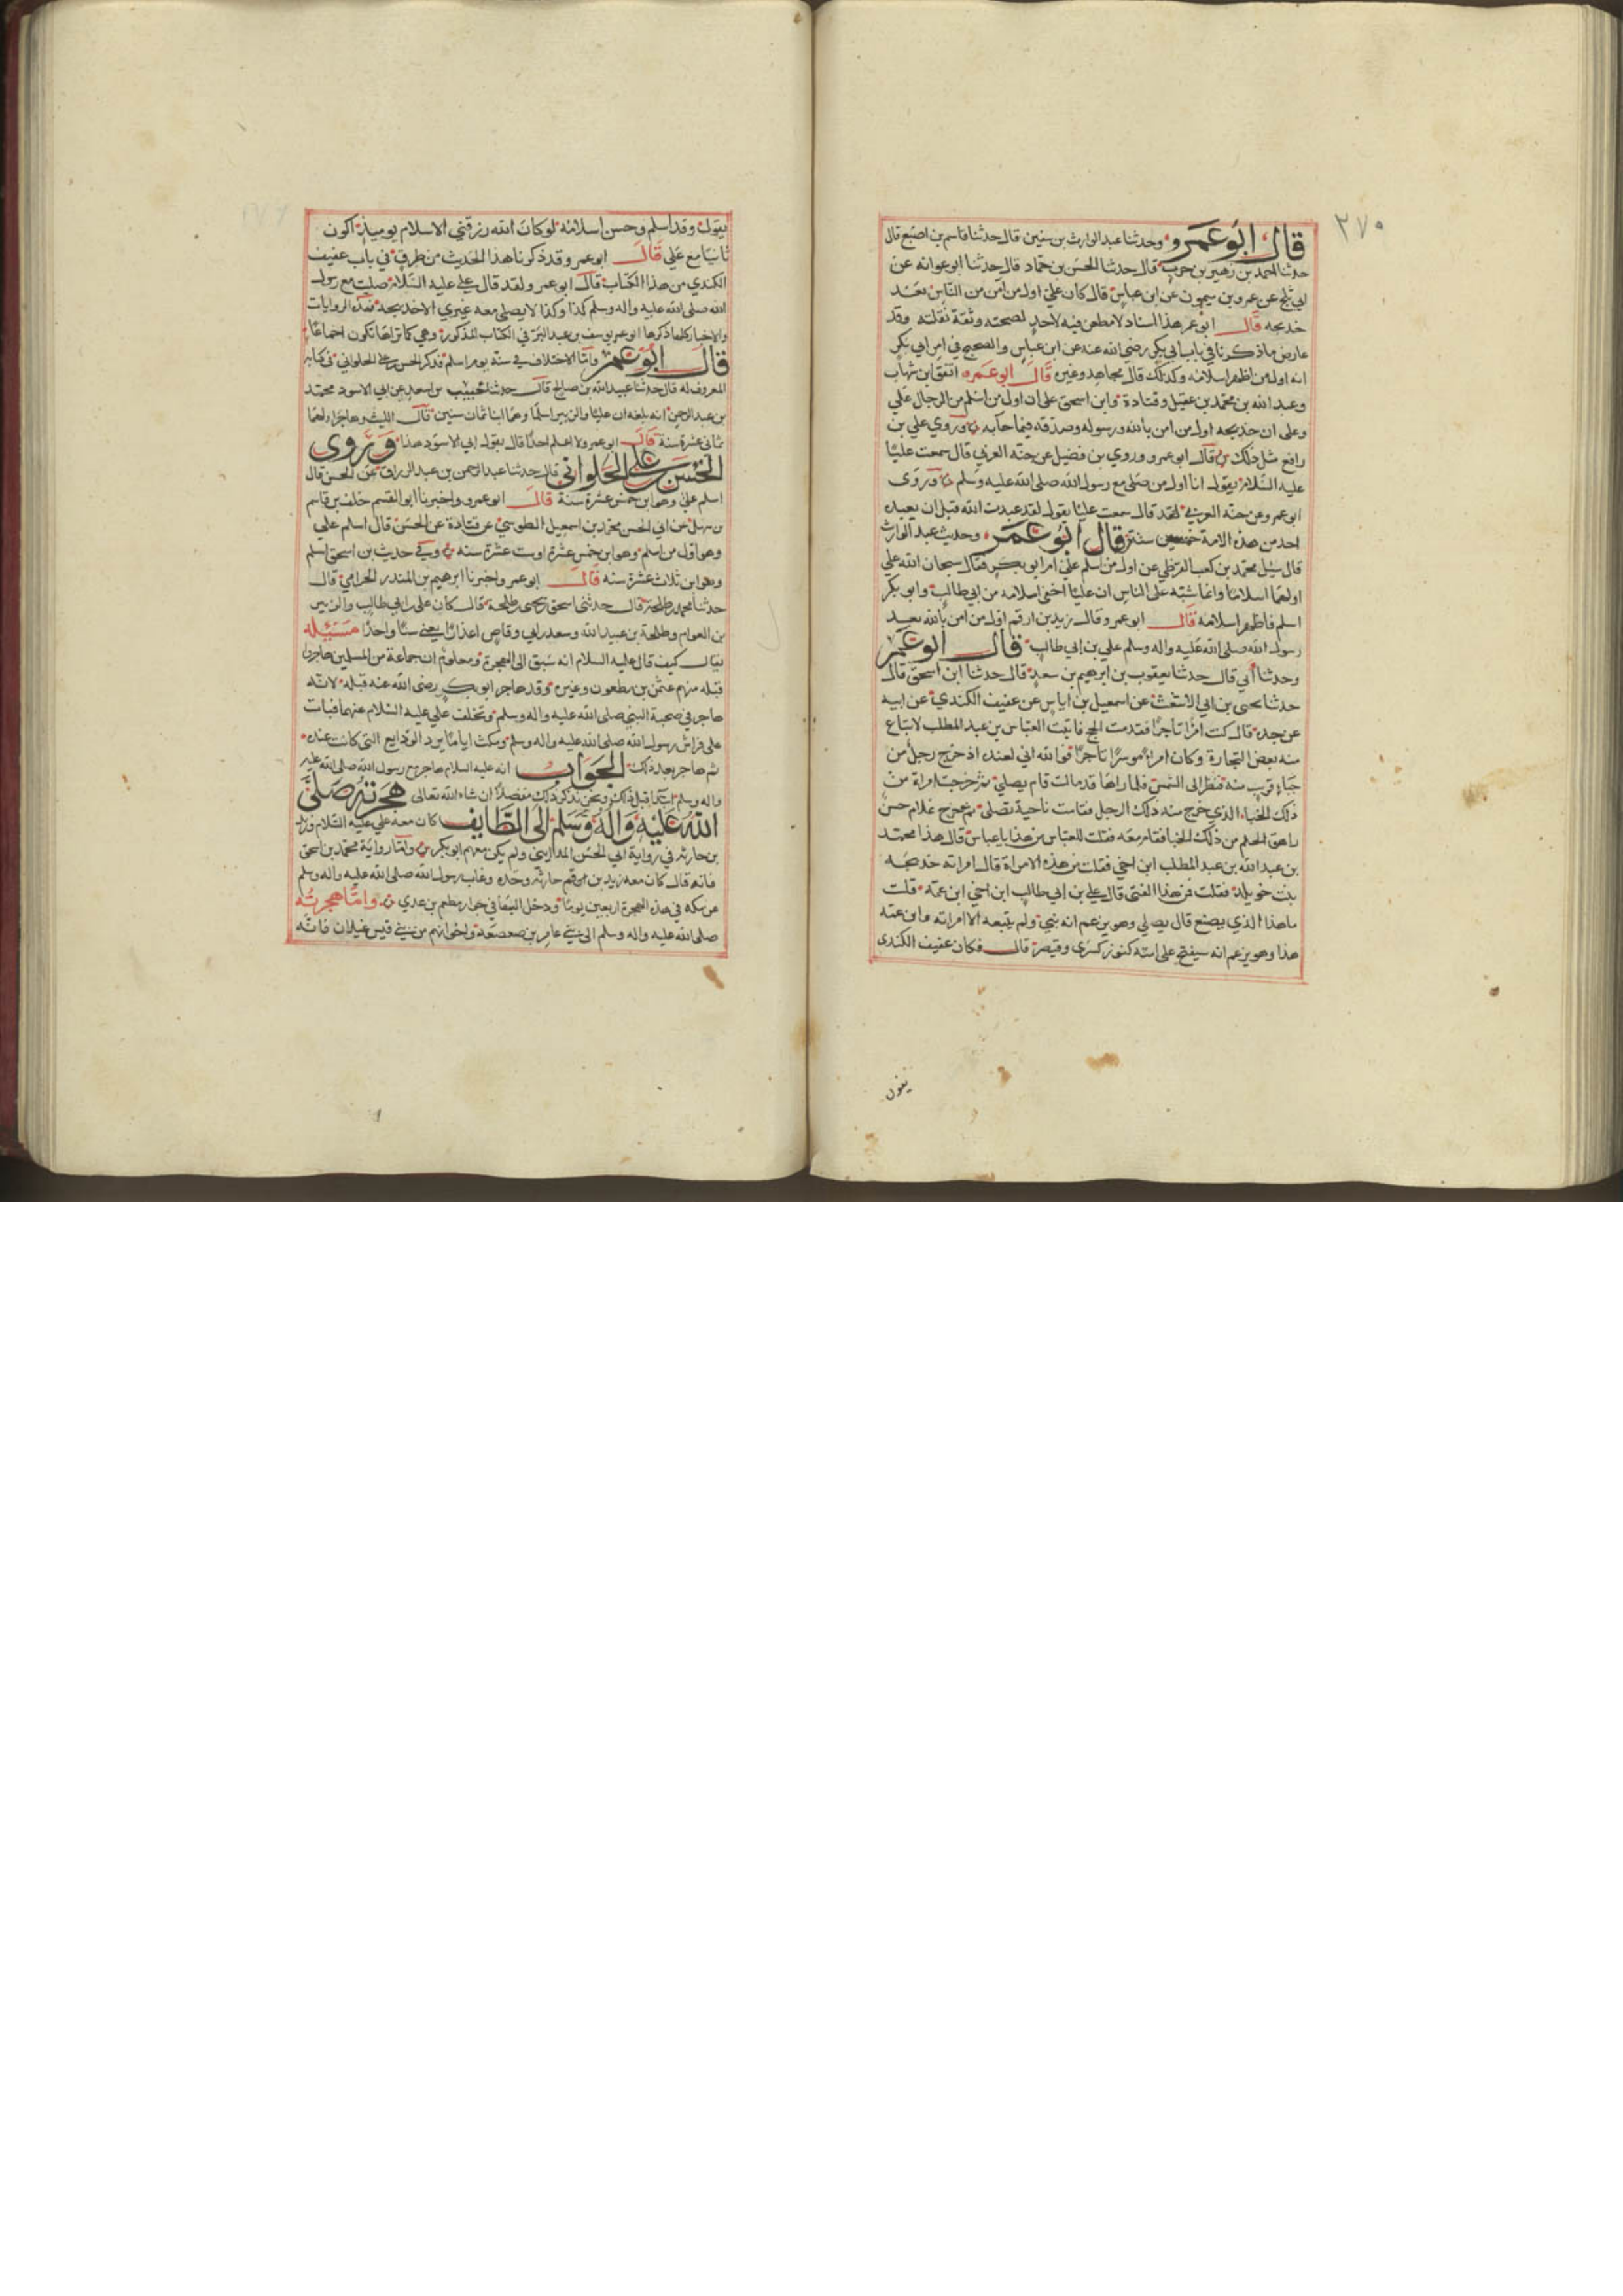 ٣٧٠
قال ابو عمرو وحدثنا عبد الوارث بن سفين قال حدثنا قاسم بن اصبغ قال
حدثنا احمد بن زهير بن حرب قال حدثنا الحسن بن حماد قال حدثنا ابو عوانه عن
ابي بلج عن عمرو بن ميمون عن ابن عباس قال كان علي اول من آمن من الناس بعد
خديجه قال ابو عمر هذا اسناد لا مطعن فيه لاحد لصحته وثقة نقلته وقد
عارض ما ذكرنا في باب ابي بكر رضي الله عنه عن ابن عباس والصحيح في امر ابي بكر
انه اول من اظهر اسلامه وكذلك قال مجاهد وغيره قال ابو عمره اتفق ابن شهاب
وعبد الله بن محمد بن عقيل وقتادة وابن اسحق على ان اول من اسلم من الرجال علي
وعلى ان خديجه اول من امن بالله ورسوله وصدقه فيما جا به وروي علي بن
رافع مثل ذلك قال ابو عمرو وروي بن فضيل عن حبّه العرني قال سمعت عليّا
عليه السلام يقول انا اول من صلى مع رسول الله صلى الله عليه وسلم وروى
ابو عمرو عن حبّه العرني لقد قال سمعت عليّا يقول لقد عبدت الله قبل ان يعبده
احد من هذه الامة خمسين سنة قال ابو عمر وحديث عبد الوارث
قال سئل محمد بن كعب القرظي عن اول من اسلم علي ام ابو بكر فقال سبحان الله علي
اولهما اسلاما وانما شبّه على الناس ان عليّا اخفى اسلامه من ابي طالب وابو بكر
اسلم فاظهر اسلامه قال ابو عمرو قال زيد بن ارقم اول من امن بالله بعد
رسول الله صلى الله عليه واله وسلم علي بن ابي طالب قال ابو عمر
وحدثنا أبي قال حدثنا يعقوب بن ابرهيم بن سعد قال حدثنا ابن اسحق قال
حدثنا يحيى بن ابي الاشعث عن اسمعيل بن اياس عن عفيف الكندي عن ابيه
عن جده قال كنت امرًا تاجرًا فقدمت الحج فاتيت العباس بن عبد المطلب لابتاع
منه بعض التجارة وكان امراءً موسرًا تاجرًا فوالله اني لعنده اذ خرج رجل من
خباءٍ قريب منه فنظر الى الشمس فلما راها قد مالت قام يصلي ثم خرجت امراة من
ذلك الخباء الذي خرج منه ذلك الرجل فقامت ناحية تصلى ثم خرج غلام حين
راهق الحلم من ذلك الخبا فقام معه فقلت للعباس من هذا يا عباس قال هذا محمد
بن عبد الله بن عبد المطلب ابن اخي فقلت من هذه الامراة قال امراته خديجه
بنت خويلد فقلت من هذا الفتى قال علي بن ابي طالب ابن اخي ابن عمّه قلت
ما هذا الذي يصنع قال يصلي وهو يزعم انه نبي ولم يتبعه الا امراته وابن عمّه
هذا وهو يزعم انه سيفتح على امته كنوز كسرى وقيصر قال فكان عفيف الكندى
يقول
يقول وقد اسلم وحسن اسلامه لو كان الله رزقني الاسلام يوميذ اكون
ثانيًا مع علي قال ابو عمر وقد ذكرنا هذا الحديث من طرق في باب عفيف
الكندي من هذا الكتاب قال ابو عمر ولقد قال علي عليه السلام صليت مع رسول
الله صلى الله عليه واله وسلم كذا وكذا لا يصلي معه غيري الا خديجه فهذه الروايات
والاخبار كلها ذكرها ابو عمر يوسف بن عبد البر في الكتاب المذكور وهي كما تراها تكون اجماعًا
قال ابو عمر وامّا الاختلاف في سنّه يوم اسلم فذكر الحسن بن علي الحلواني في كتابه
المعروف له قال حدثنا عبد الله بن صالح قال حدثنا الليث بن سعد عن ابي الاسود محمد
بن عبد الرحمن انه بلغه ان عليّا والزبير اسلما وهما ابنا ثمان سنين قال الليث وهاجرا ولهما
ثماني عشرة سنة قال ابو عمر ولا اعلم احدًا قال بقول ابي الاسود هذا وروى
الحسن بن علي الحلواني قال حدثنا عبد الرحمن بن عبد الرزاق عن الحسن قال
اسلم علي وهو ابن خمس عشرة سنة قال ابو عمرو واخبرنا ابو القسم خلف بن قاسم
بن سهل عن ابي الحسن محمد بن اسمعيل الطوسي عن قتادة عن الحسن قال اسلم علي
وهو اول من اسلم وهو ابن خمس عشرة او ست عشرة سنه وفي حديث بن اسحق اسلم
وهو ابن ثلاث عشرة سنه قال ابو عمر واخبرنا ابرهيم بن المنذر الحرامي قال
حدثنا محمد بن طلحة قال حدثني اسحق بن يحيى بن طلحة قال كان علي بن ابي طالب والزبير
بن العوام وطلحة بن عبيد الله وسعد بن ابي وقاص اعذارًا يعني سنًّا واحدًا مسئله
يقال كيف قال عليه السلام انه سبق الى الهجرة ومعلوم ان جماعة من المسلمين هاجروا
قبله منهم عثمن بن مظعون وغيره وقد هاجر ابو بكر رضى الله عنه قبله لانّه
هاجر في صحبة النبي صلى الله عليه واله وسلم وتخلف علي عليه السلام عنهما فبات
على فراش رسول الله صلى الله عليه واله وسلم ومكث اياما يرد الودايع التي كانت عنده
ثم هاجر بعد ذلك الجواب انه عليه السلام هاجر مع رسول الله صلى الله عليه
واله وسلم قبل ذلك ونحن نذكر ذلك مفصلاً ان شاء الله تعالى هجرته صلى
الله عليه واله وسلم الى الطايف كان معه علي عليه السلام وزيد
بن حارثه في رواية ابي الحسن المدايني ولم يكن معهم ابو بكر وامّا رواية محمد بن اسحق
فانه قال كان معه زيد بن حارثه وحده وغاب رسول الله صلى الله عليه واله وسلم
عن مكه في هذه الهجرة اربعين يومًا ودخل اليها في جوار مطعم بن عدي وامّا هجرته
صلى الله عليه واله وسلم الى بني عامر بن صعصعه واخوانهم من بني قيس غيلان فانّه